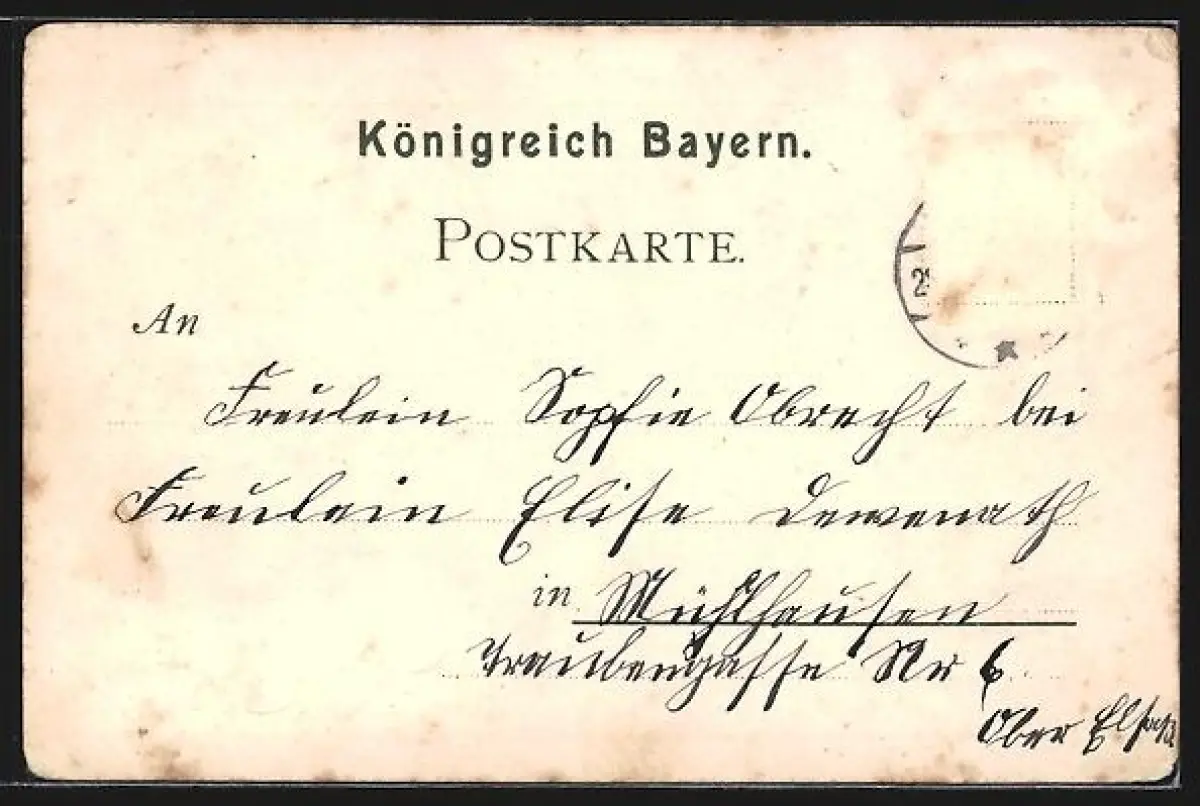 Königreich Bayern.
POSTKARTE.
An
Freulein Sopfie Obrecht bei
Freulein Elise Dewenath
in Mühlhausen
Traubengasse Nr 6
Ober Elsaß